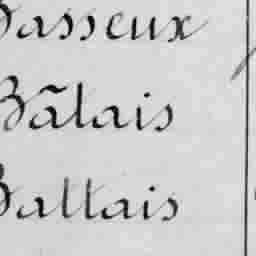 Basseux
Bãlais
Baltais